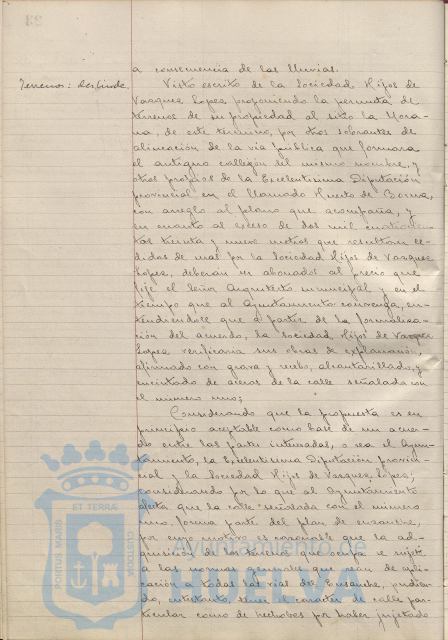 a consecuencia de las lluvias.
Terrenos: deslinde.
Visto escrito de la Sociedad Hijos de
Vazquez Lopez, proponiendo la permuta de
terrenos de su propiedad al sitio la Mora-
na, de este término, por otros sobrantes de
alineación de la via publica que formara
el antiguo callejon del mismo nombre, y
otros propios de la Excelentisima Diputación
provincial en el llamado Huerto de
con arreglo al plano que acompaña, y
en cuanto al exceso de dos mil cuatrocien-
tos treinta y nueve metros que resultara ce-
didos de mas por la Sociedad Hijos de Vazquez
Lopez, deberán ser abonados al precio que
fije el Señor Arquitecto municipal y en el
tiempo que al Ayuntamiento convenga, en-
tendiendose que a partir de la formaliza-
ción del acuerdo, la Sociedad Hijos de Vazquez
Lopez verificaria sus obras de explanación,
afirmado con grava y recebo, alcantarillado, y
encintado de aceras de la calle señalada con
el numero uno;
Considerando que la propuesta es en
principio aceptable como base de un acuer-
do entre las partes interesadas, o sea el Ayun-
tamiento, la Excelentisima Diputación provin-
cial y la Sociedad Hijos de Vazquez Lopez;
considerando por lo que al Ayuntamiento
afecta que la calle señalada con el numero
uno, forma parte del plan de ensanche,
por cuyo motivo es razonable que la ad-
quisición de los terrenos que ocupa se sujete
a las normas generales que sean de apli-
cación a todas las vias del Ensanche, pudien-
do, entretanto, tener el carácter de calle par-
ticular como de hechobes por haber
PORTUS MARIS ET TERRAE CUSTODIA
Ayuntamiento de
HUELVA